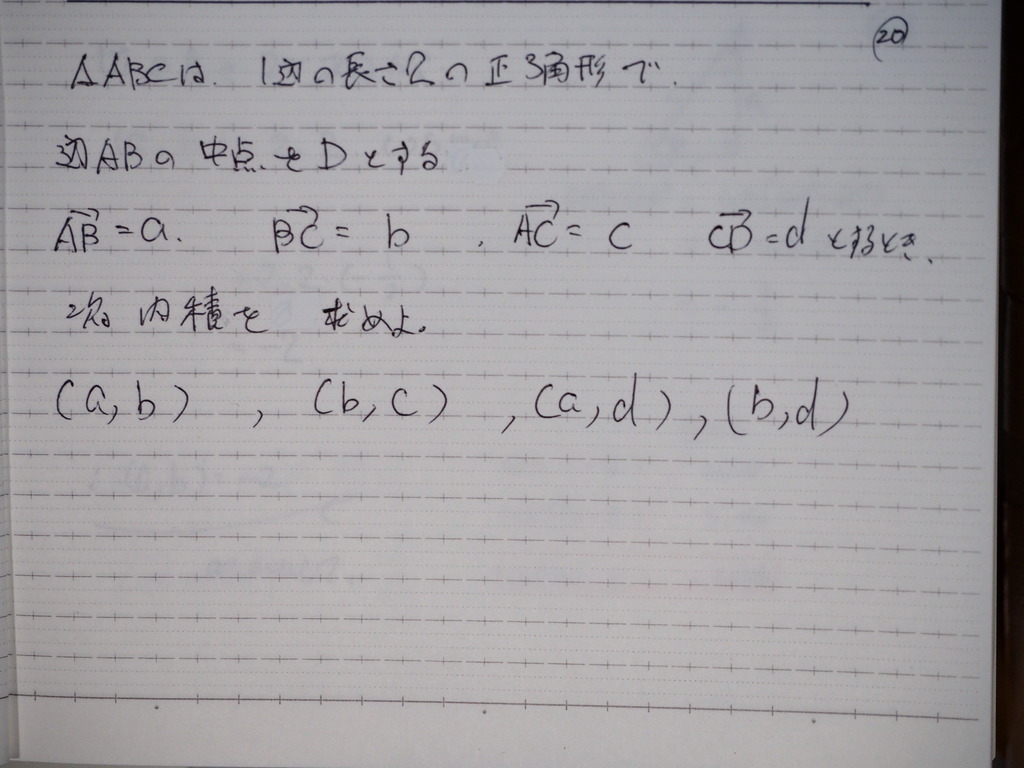 ⑳
△ABCは、1辺の長さ2の正3角形で、
辺ABの中点をDとする
$\overrightarrow{AB}$=a. $\overrightarrow{BC}$= b , $\overrightarrow{AC}$= c $\overrightarrow{CD}$=d とするとき、
次の内積を 求めよ。
(a,b) , (b,c) , (a,d) , (b,d)